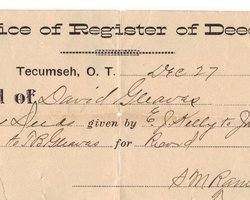 ice of Register of Deed
Tecumseh, O. T. Dec 27
d of David Gleaves
Deeds given by E. J. Kelly to J
to T B Gleaves for Record
S M Ram